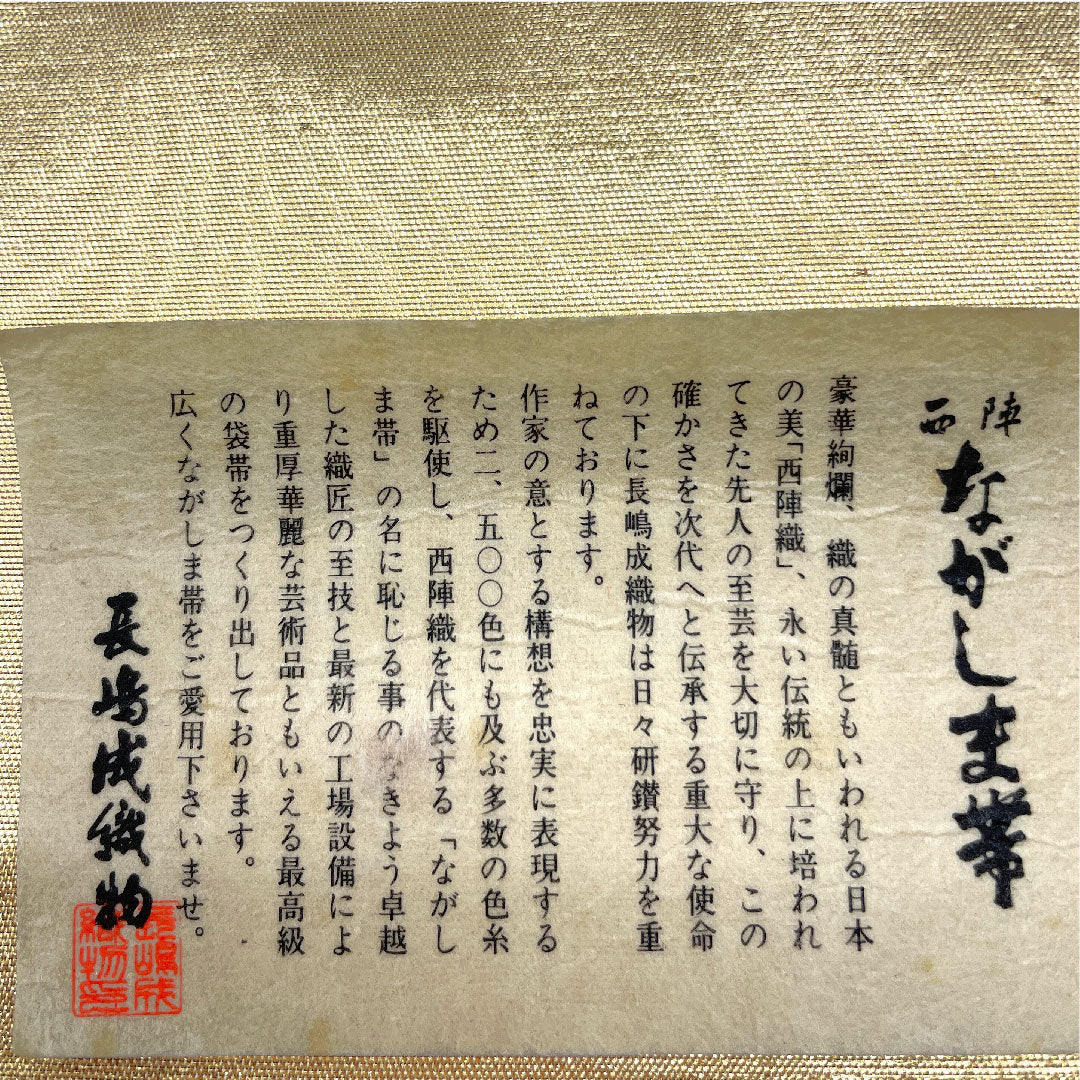 西陣
ながしま帯
豪華絢爛、織の真髄ともいわれる日本
の美「西陣織」、永い伝統の上に培われ
てきた先人の至芸を大切に守り、この
確かさを次代へと伝承する重大な使命
の下に長嶋成織物は日々研鑽努力を重
ねております。
作家の意とする構想を忠実に表現する
ため二、五〇〇色にも及ぶ多数の色糸
を駆使し、西陣織を代表する「ながし
ま帯」の名に恥じる事のなきよう卓越
した織匠の至技と最新の工場設備によ
り重厚華麗な芸術品ともいえる最高級
の袋帯をつくり出しております。
広くながしま帯をご愛用下さいませ。
長嶋成織物